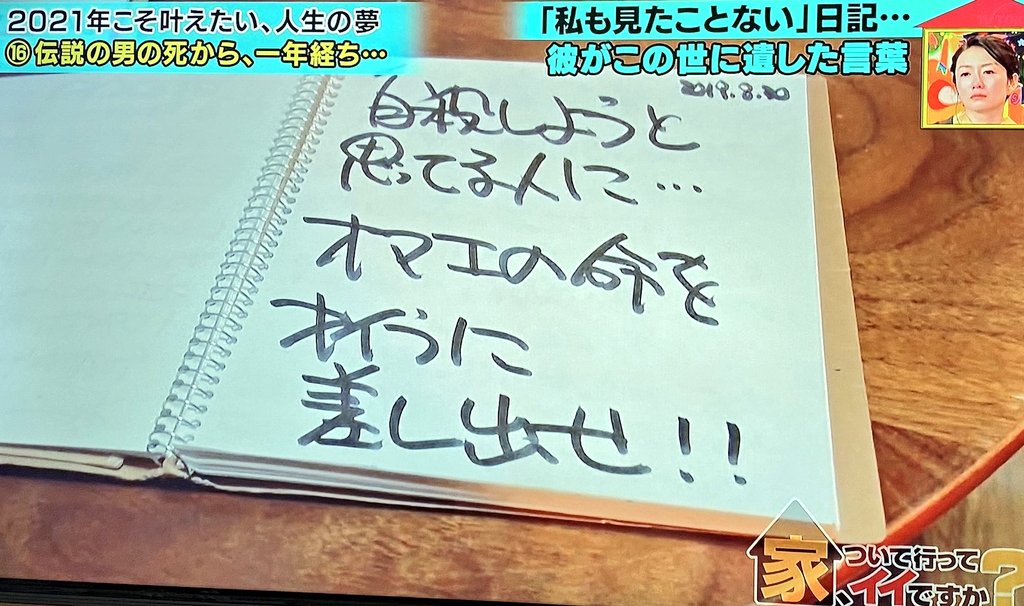 2021年こそ叶えたい、人生の夢
⑯伝説の男の死から、一年経ち…
「私も見たことない」日記…
彼がこの世に遺した言葉
2019.8.20
自殺しようと
思ってる人に…
オマエの命を
オイらに
差し出せ!!
家、ついて行って
イイですか?